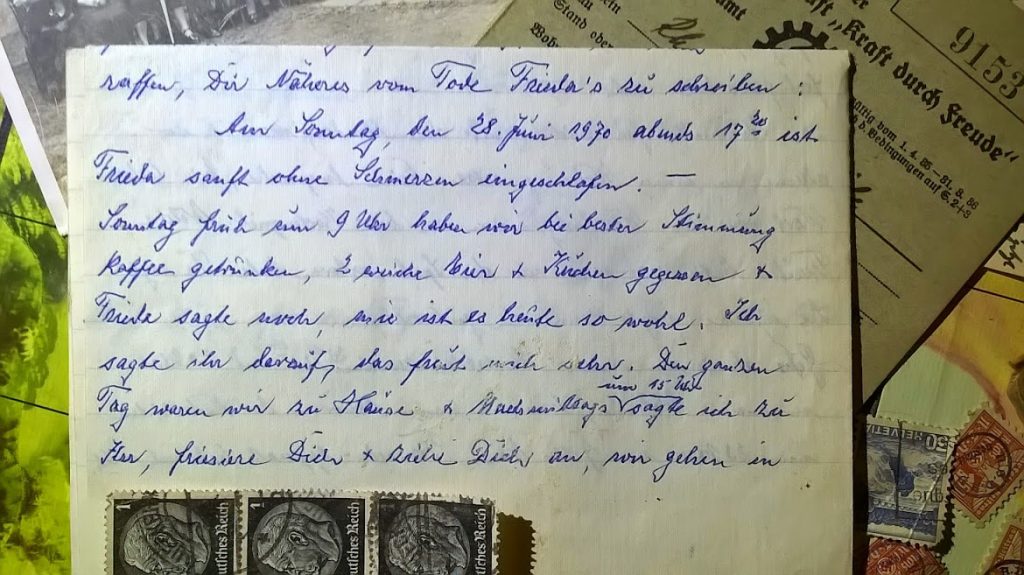 raffen, Dir Näheres vom Tode Frieda's zu schreiben :
Am Sonntag, den 28. Juni 1970 abends 17 30 ist
Frieda sanft ohne Schmerzen eingeschlafen. —
Sonntag früh um 9 Uhr haben wir bei bester Stimmung
Kaffee getrunken, 2 weiche Eier + Kuchen gegessen +
Frieda sagte noch, mir ist es heute so wohl. Ich
sagte ihr darauf, das freut mich sehr. Den ganzen
Tag waren wir zu Hause + Nachmittags um 15 Uhr sagte ich zu
Ihr, frisiere Dich + ziehe Dich an, wir gehen in
amt
Stand oder
Woh
"Kraft durch Freude"
9153
gültig vom 1. 4. 36 - 31. 3. 36
d. Bedingungen auf S. 2+3
1
Deutsches Reich
1
Deutsches Reich
1
Deutsches Reich
30 HELVETIA